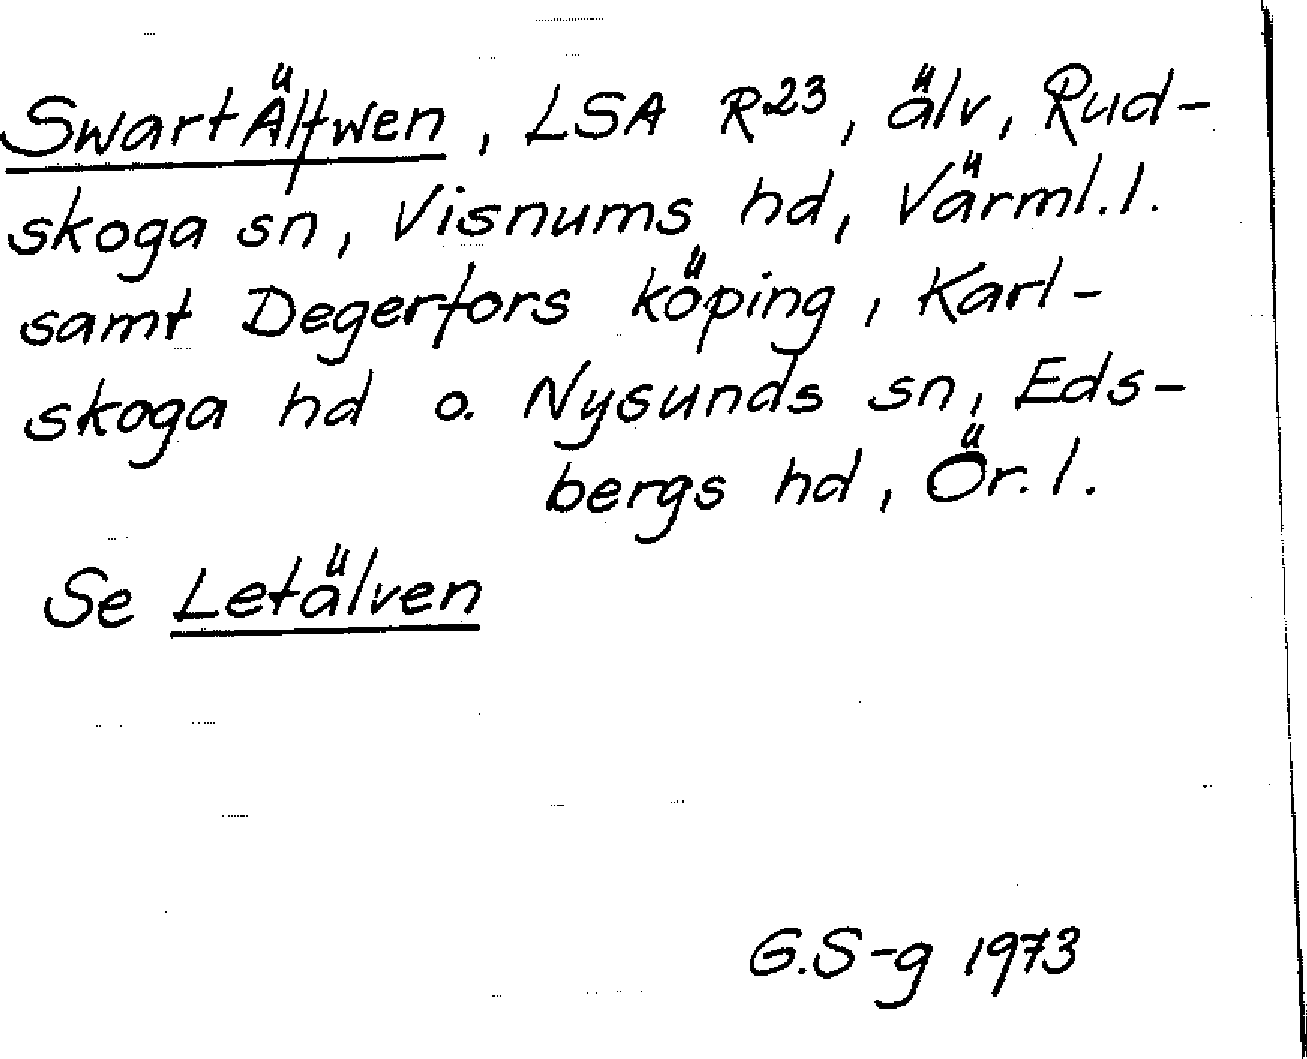 SwartÄlfwen, LSA R23, älv, Rud-
skoga sn, Visnums hd, Värml. l.
samt Degerfors köping, Karl-
skoga hd o. Nysunds sn, Eds-
bergs hd, Ör. l.
Se Letälven
G.S-g 1973